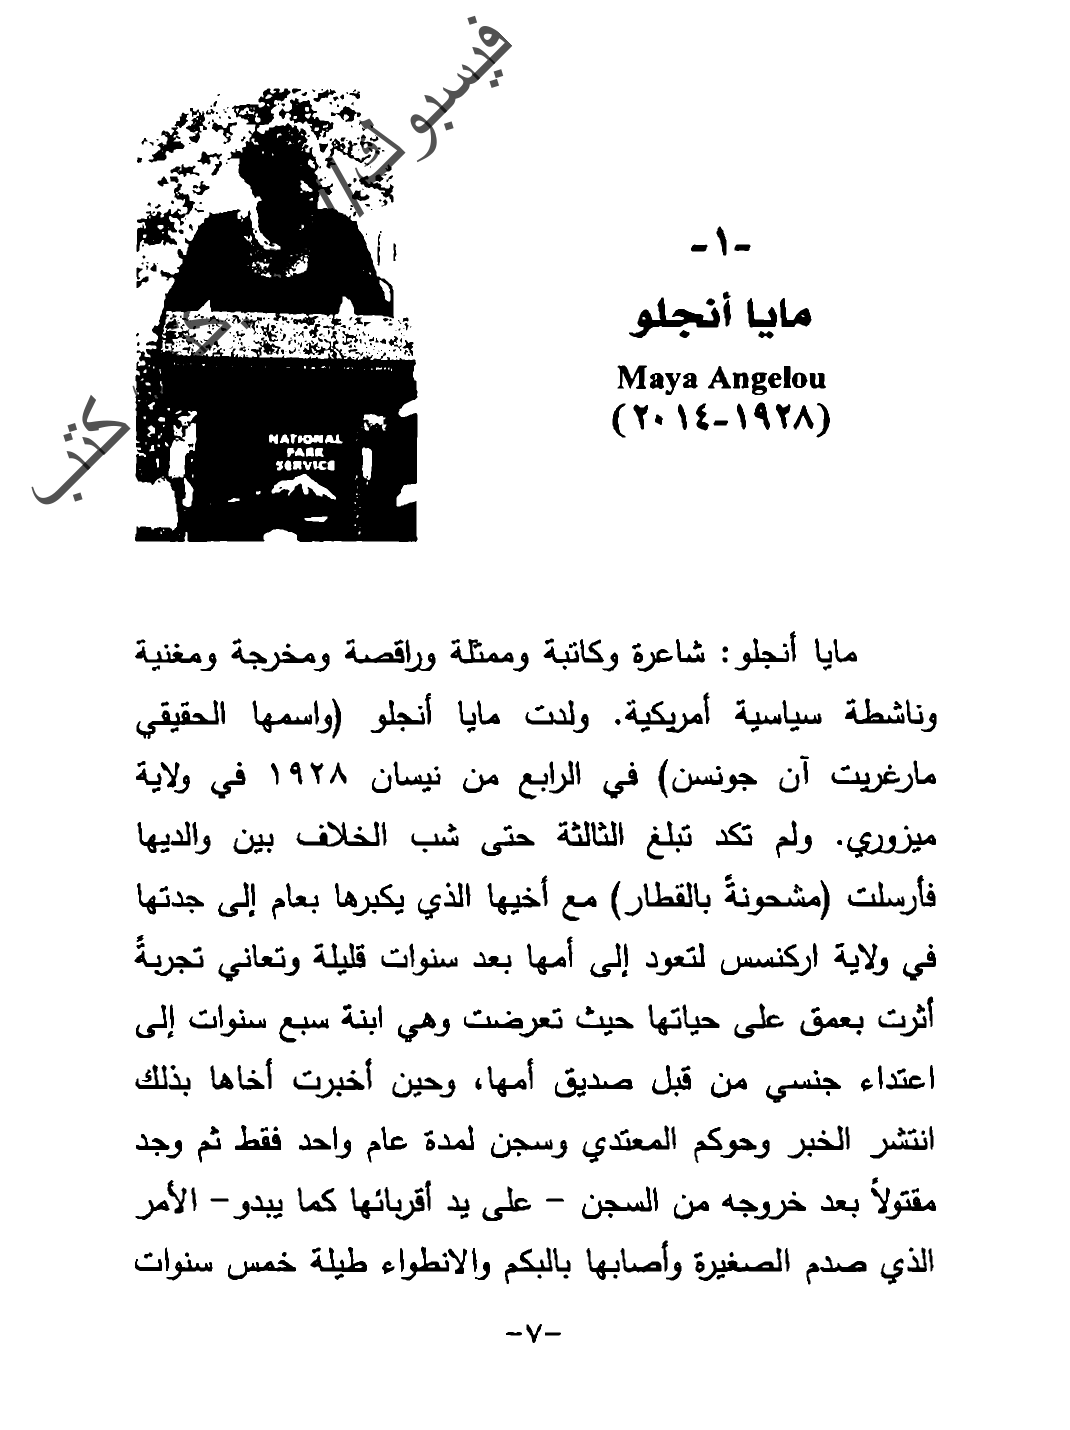 -١-
مايا أنجلو
Maya Angelou
(١٩٢٨-٢٠١٤)
NATIONAL
PARK
SERVICE
مايا أنجلو: شاعرة وكاتبة وممثلة وراقصة ومخرجة ومغنية
وناشطة سياسية أمريكية. ولدت مايا أنجلو (واسمها الحقيقي
مارغريت آن جونسن) في الرابع من نيسان ١٩٢٨ في ولاية
ميزوري. ولم تكد تبلغ الثالثة حتى شب الخلاف بين والديها
فأرسلت (مشحونةً بالقطار) مع أخيها الذي يكبرها بعام إلى جدتها
في ولاية اركنسس لتعود إلى أمها بعد سنوات قليلة وتعاني تجربةً
أثرت بعمق على حياتها حيث تعرضت وهي ابنة سبع سنوات إلى
اعتداء جنسي من قبل صديق أمها، وحين أخبرت أخاها بذلك
انتشر الخبر وحوكم المعتدي وسجن لمدة عام واحد فقط ثم وجد
مقتولاً بعد خروجه من السجن - على يد أقربائها كما يبدو- الأمر
الذي صدم الصغيرة وأصابها بالبكم والانطواء طيلة خمس سنوات
-٧-
فيسبوك/
كتب